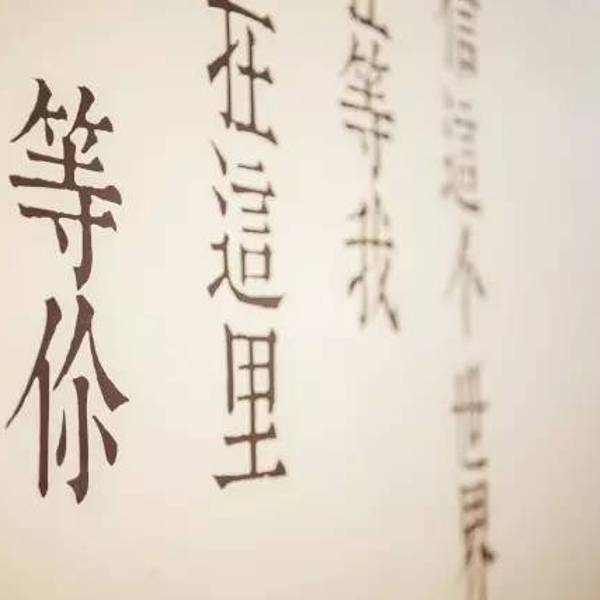 信這个世界
等我
在這里
等你